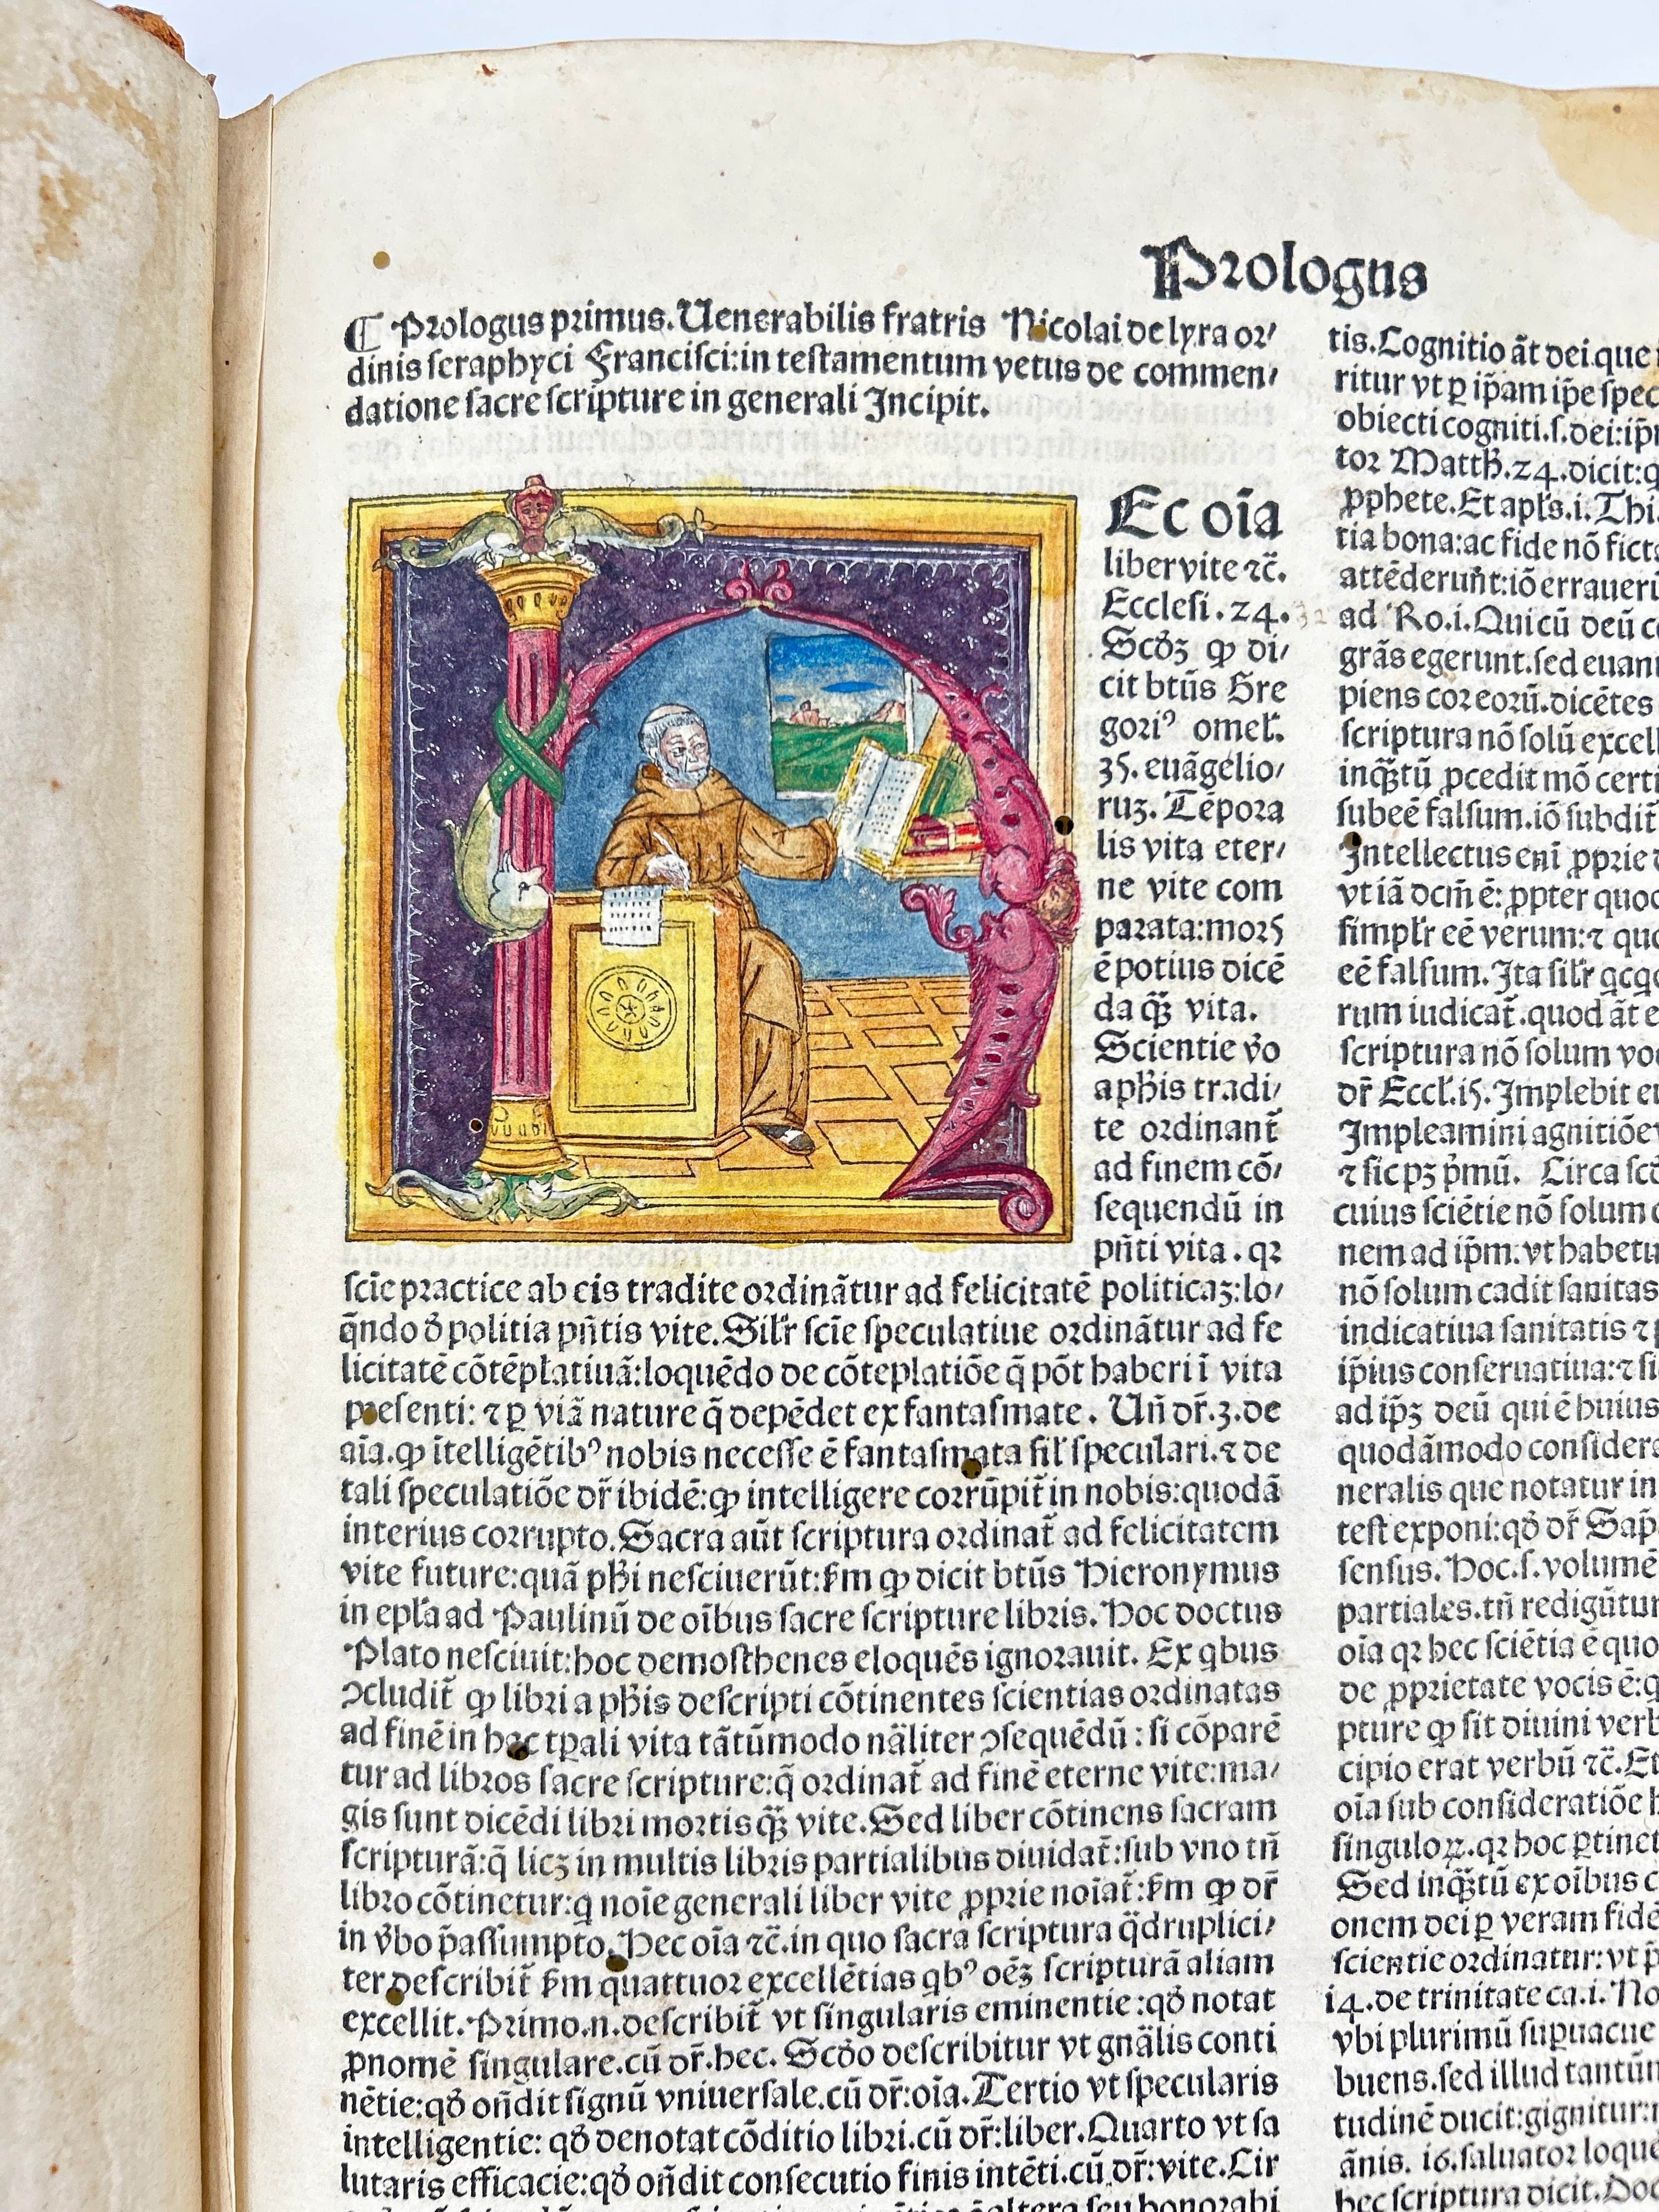 Prologus
¶ Prologus primus. Uenerabilis fratris Nicolai de lyra or/
dinis seraphyci Francisci: in testamentum vetus de commen/
datione sacre scripture in generali Incipit.
HEc oīa
liber vite ⁊c̄.
Ecclesi. 24.
Scd̄ꝫ ꝙ di/
cit btūs Gre
goriꝰ omel̄.
35. euāgelio/
ruꝫ. Tēpora
lis vita eter/
ne vite com
parata: mors
ē potius dicē
da qꝫ̄ vita.
Scientie v̄o
a ph̄is tradi/
te ordinant̄
ad finem cō/
sequendū in
pn̄ti vita. qꝛ
scīe practice ab eis tradite ordināt̄ur ad felicitatē politicaꝫ: lo/
q̄ndo d̄ politia pn̄tis vite. Sil̄r scīe speculatiue ordinātur ad fe
licitatē cōtēplatiuā: loquēdo de cōteplatiōe q̄ pōt haberi ī vita
presenti: ⁊ ꝑ viā nature q̄ depēdet ex fantasmate. Un̄ dr̄. 3. de
aīa. ꝙ ītelligētibꝰ nobis necesse ē fantasmata sil̄ speculari. ⁊ de
tali speculatiōe dr̄ ibidē: ꝙ intelligere corrūpit̄ in nobis: quodā
interius corrupto. Sacra aūt scriptura ordinat̄ ad felicitatem
vite future: quā ph̄i nesciuerūt: s̄m ꝙ dicit btūs Hieronymus
in epl̄a ad Paulinū de oībus sacre scripture libris. Hoc doctus
Plato nesciuit: hoc demosthenes eloquēs ignorauit. Ex qbus
ↄcludit̄ ꝙ libri a ph̄is descripti cōtinentes scientias ordinatas
ad finē in hac tꝑali vita tātūmodo nāliter ↄsequēdū: si cōparē
tur ad libros sacre scripture: q̄ ordinat̄ ad finē eterne vite: ma/
gis sunt dicēdi libri mortis qꝫ̄ vite. Sed liber cōtinens sacram
scripturā: q̄ licꝫ in multis libris partialibus diuidat̄: sub vno tn̄
libro cōtinetur: q noīe generali liber vite ꝓprie noīat̄: s̄m ꝙ dr̄
in v̄bo p̄assumpto. Hec oīa ⁊c̄. in quo sacra scriptura q̄druplici/
ter describit̄ s̄m quattuor excellētias qbꝰ oēꝫ scripturā aliam
excellit. Primo. n. describit̄ vt singularis eminentie: qd̄ notat
ꝓnomē singulare. cū dr̄. hec. Scd̄o describitur vt gnālis conti
nētie: qd̄ on̄dit signū vniuersale. cū dr̄: oīa. Tertio vt specularis
intelligentie: qd̄ denotat cōditio libri. cū dr̄: liber. Quarto vt sa
lutaris efficacie: qd̄ on̄dit consecutio finis intēti. cū dr̄: vite. Cir
tis. Cognitio āt dei. que
ritur vt ꝑ ip̄am ip̄e spec
obiecti cogniti. s. dei: ip̄
tor Matth̄. 24. dicit: q
ꝓphete. Et apl̄s. i. Thi
tia bona: ac fide nō fict
attēderun̄t: iō erraueri
ad Ro. i. Quicū deū c
grās egerunt. sed euan
piens cor eorū. dicētes
scriptura nō solū excell
inqꝫ̄tū ꝓcedit mō certi
subeē falsum. iō subdit
Intellectus enī ꝓprie
vt iā dcm̄ ē: ꝓpter quod
simpl̄r eē verum: ⁊ quo
eē falsum. Ita sil̄r qcqd
rum iudicat̄. quod āt e
scriptura nō solum vo
dr̄ Eccl̄. i5. Implebit e
Impleamini agnitiōe
⁊ sic pꝫ pm̄ū. Circa sc
cuius sciētie nō solum
nem ad ip̄m. vt habetu
nō solum cadit sanitas
indicatiua sanitatis ⁊
ip̄ius conseruatiua: ⁊ si
ad ip̄ꝫ deū qui ē huius
quodāmodo consider
neralis que notatur in
test exponi: qd̄ dr̄ Sap
sensus. Hoc. s. volumē
partiales. tn̄ redigūtur
oīa qꝛ hec sciētia ē quo
de ꝓprietate vocis ē: q
pture ꝙ sit diuini verb
cipio erat verbū ⁊c̄. Et
oīa sub consideratiōe h
singuloꝝ. qꝛ hoc ꝑtinet
Sed inqꝫ̄tū ex oībus c
onem dei ꝑ veram fidē
scientie ordinatur: vt p
i4. de trinitate ca. i. No
vbi plurimū suꝑuacue
buens. sed illud tantūm
tudinē ducit: gignitur:
ānis. i6. saluator loquē
hec scriptura dicit. Doc